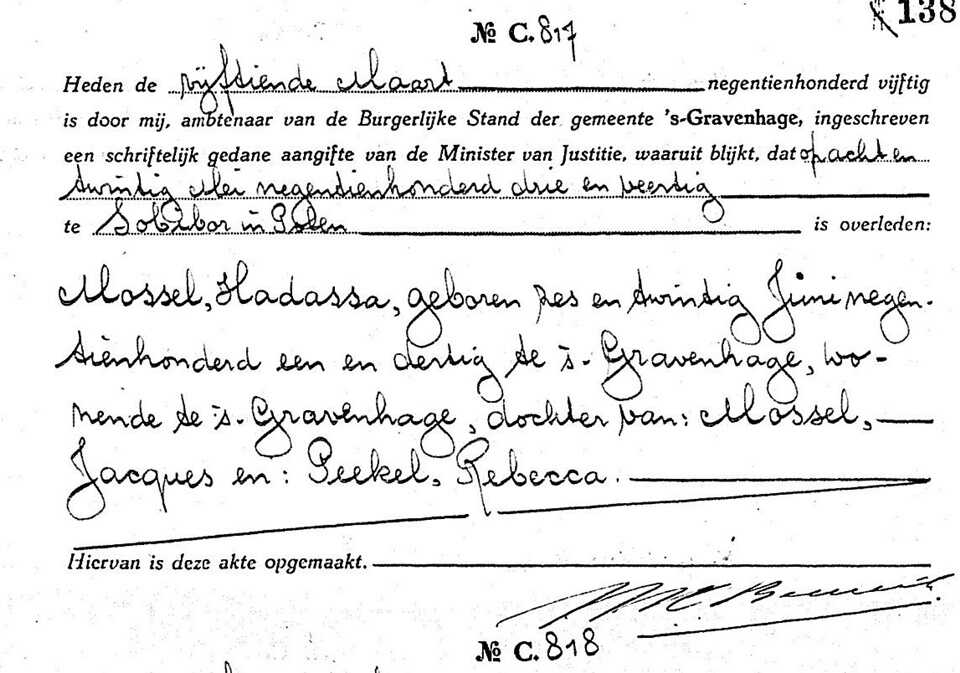 138
№ C. 817
Heden de vijftiende Maart negentienhonderd vijftig
is door mij, ambtenaar van de Burgerlijke Stand der gemeente 's-Gravenhage, ingeschreven
een schriftelijk gedane aangifte van de Minister van Justitie, waaruit blijkt, dat op acht en
twintig Mei negentienhonderd drie en veertig
te Sobibor in Polen is overleden:
Mossel, Hadassa, geboren zes en twintig Juni negen-
tienhonderd een en dertig te 's-Gravenhage, wo-
nende te 's-Gravenhage, dochter van: Mossel,
Jacques en: Peekel, Rebecca.
Hiervan is deze akte opgemaakt.
№ C. 818